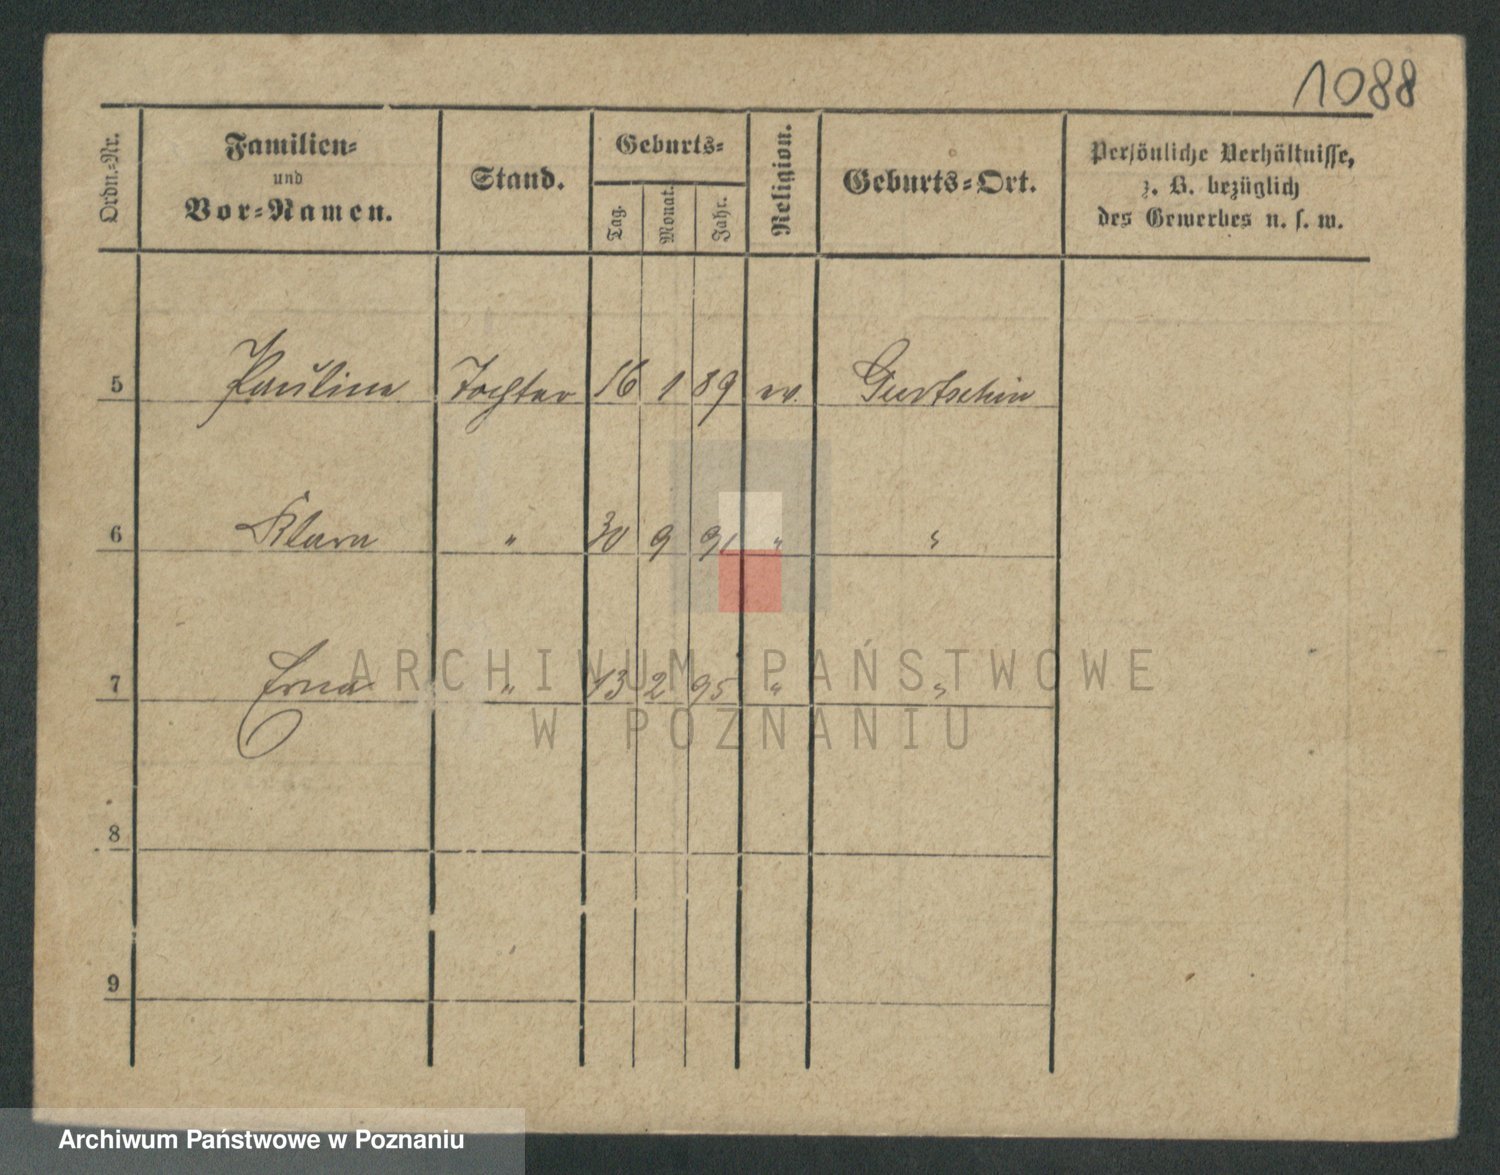 1088
Ordn.-Nr. Familien- und Vor-Namen. Stand. Geburts- Tag. Monat. Jahr. Religion. Geburts-Ort. Persönliche Verhältnisse, z. B. bezüglich des Gewerbes u. s. w.
5 Pauline Tochter 16 1 89 ev. Gurtschin
6 Klara " 30 9 91 " "
7 Erna " 13 2 95 " "
8
9
ARCHIWUM PAŃSTWOWE
W POZNANIU
Archiwum Państwowe w Poznaniu